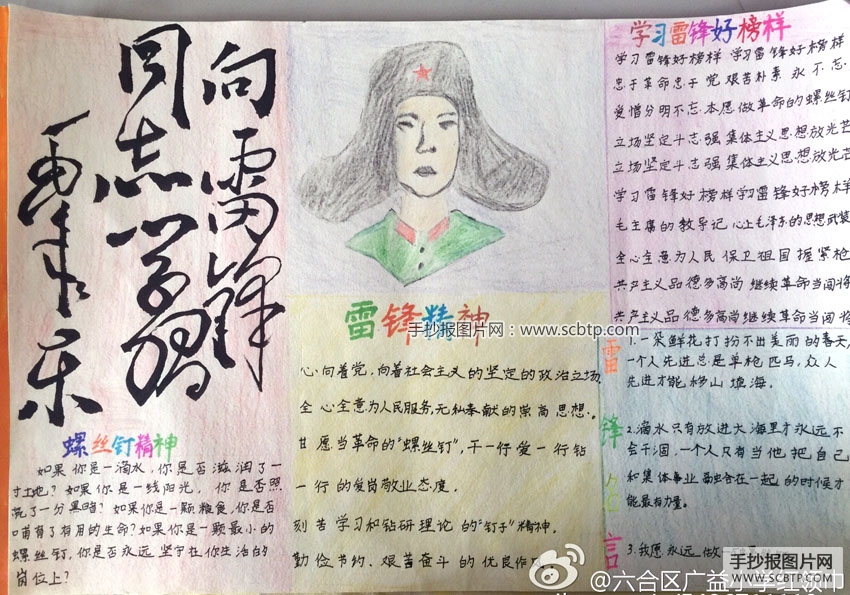 向雷锋
同志学习
毛泽东
螺丝钉精神
如果你是一滴水,你是否滋润了一
寸土地?如果你是一线阳光,你是否照
亮了一分黑暗?如果你是一颗粮食,你是否
哺育了有用的生命?如果你是一颗最小的
螺丝钉,你是否永远坚守在你生活的
岗位上?
雷锋精神
手抄报图片网:www.scbtp.com
心向着党,向着社会主义的坚定的政治立场
全心全意为人民服务,无私奉献的崇高思想.。
甘愿当革命的“螺丝钉”,干一行爱一行钻
一行的爱岗敬业态度。
刻苦学习和钻研理论的“钉子”精神。
勤俭节约、艰苦奋斗的优良作
学习雷锋好榜样
学习雷锋好榜样 学习雷锋好榜样
忠于革命忠于党 艰苦朴素永不忘
爱憎分明不忘本愿做革命的螺丝钉
立场坚定斗志强集体主义思想放光芒
立场坚定斗志强集体主义思想放光芒
学习雷锋好榜样学习雷锋好榜样
毛主席的教导记心上毛泽东的思想武装
全心全意为人民保卫祖国握紧枪
共产主义品德多高尚继续革命当闯将
共产主义品德多高尚继续革命当闯将
雷锋名言
1.一朵鲜花打扮不出美丽的春天,
一个人先进总是单枪匹马,众人
先进才能移山填海。
2.滴水只有放进大海里才永远不
会干涸,一个人只有当他把自己
和集体事业融合在一起的时候才
能最有力量。
3.我愿永远做一
手抄报图片网
WWW.SCBTP.COM
@六合区广益小学红领巾